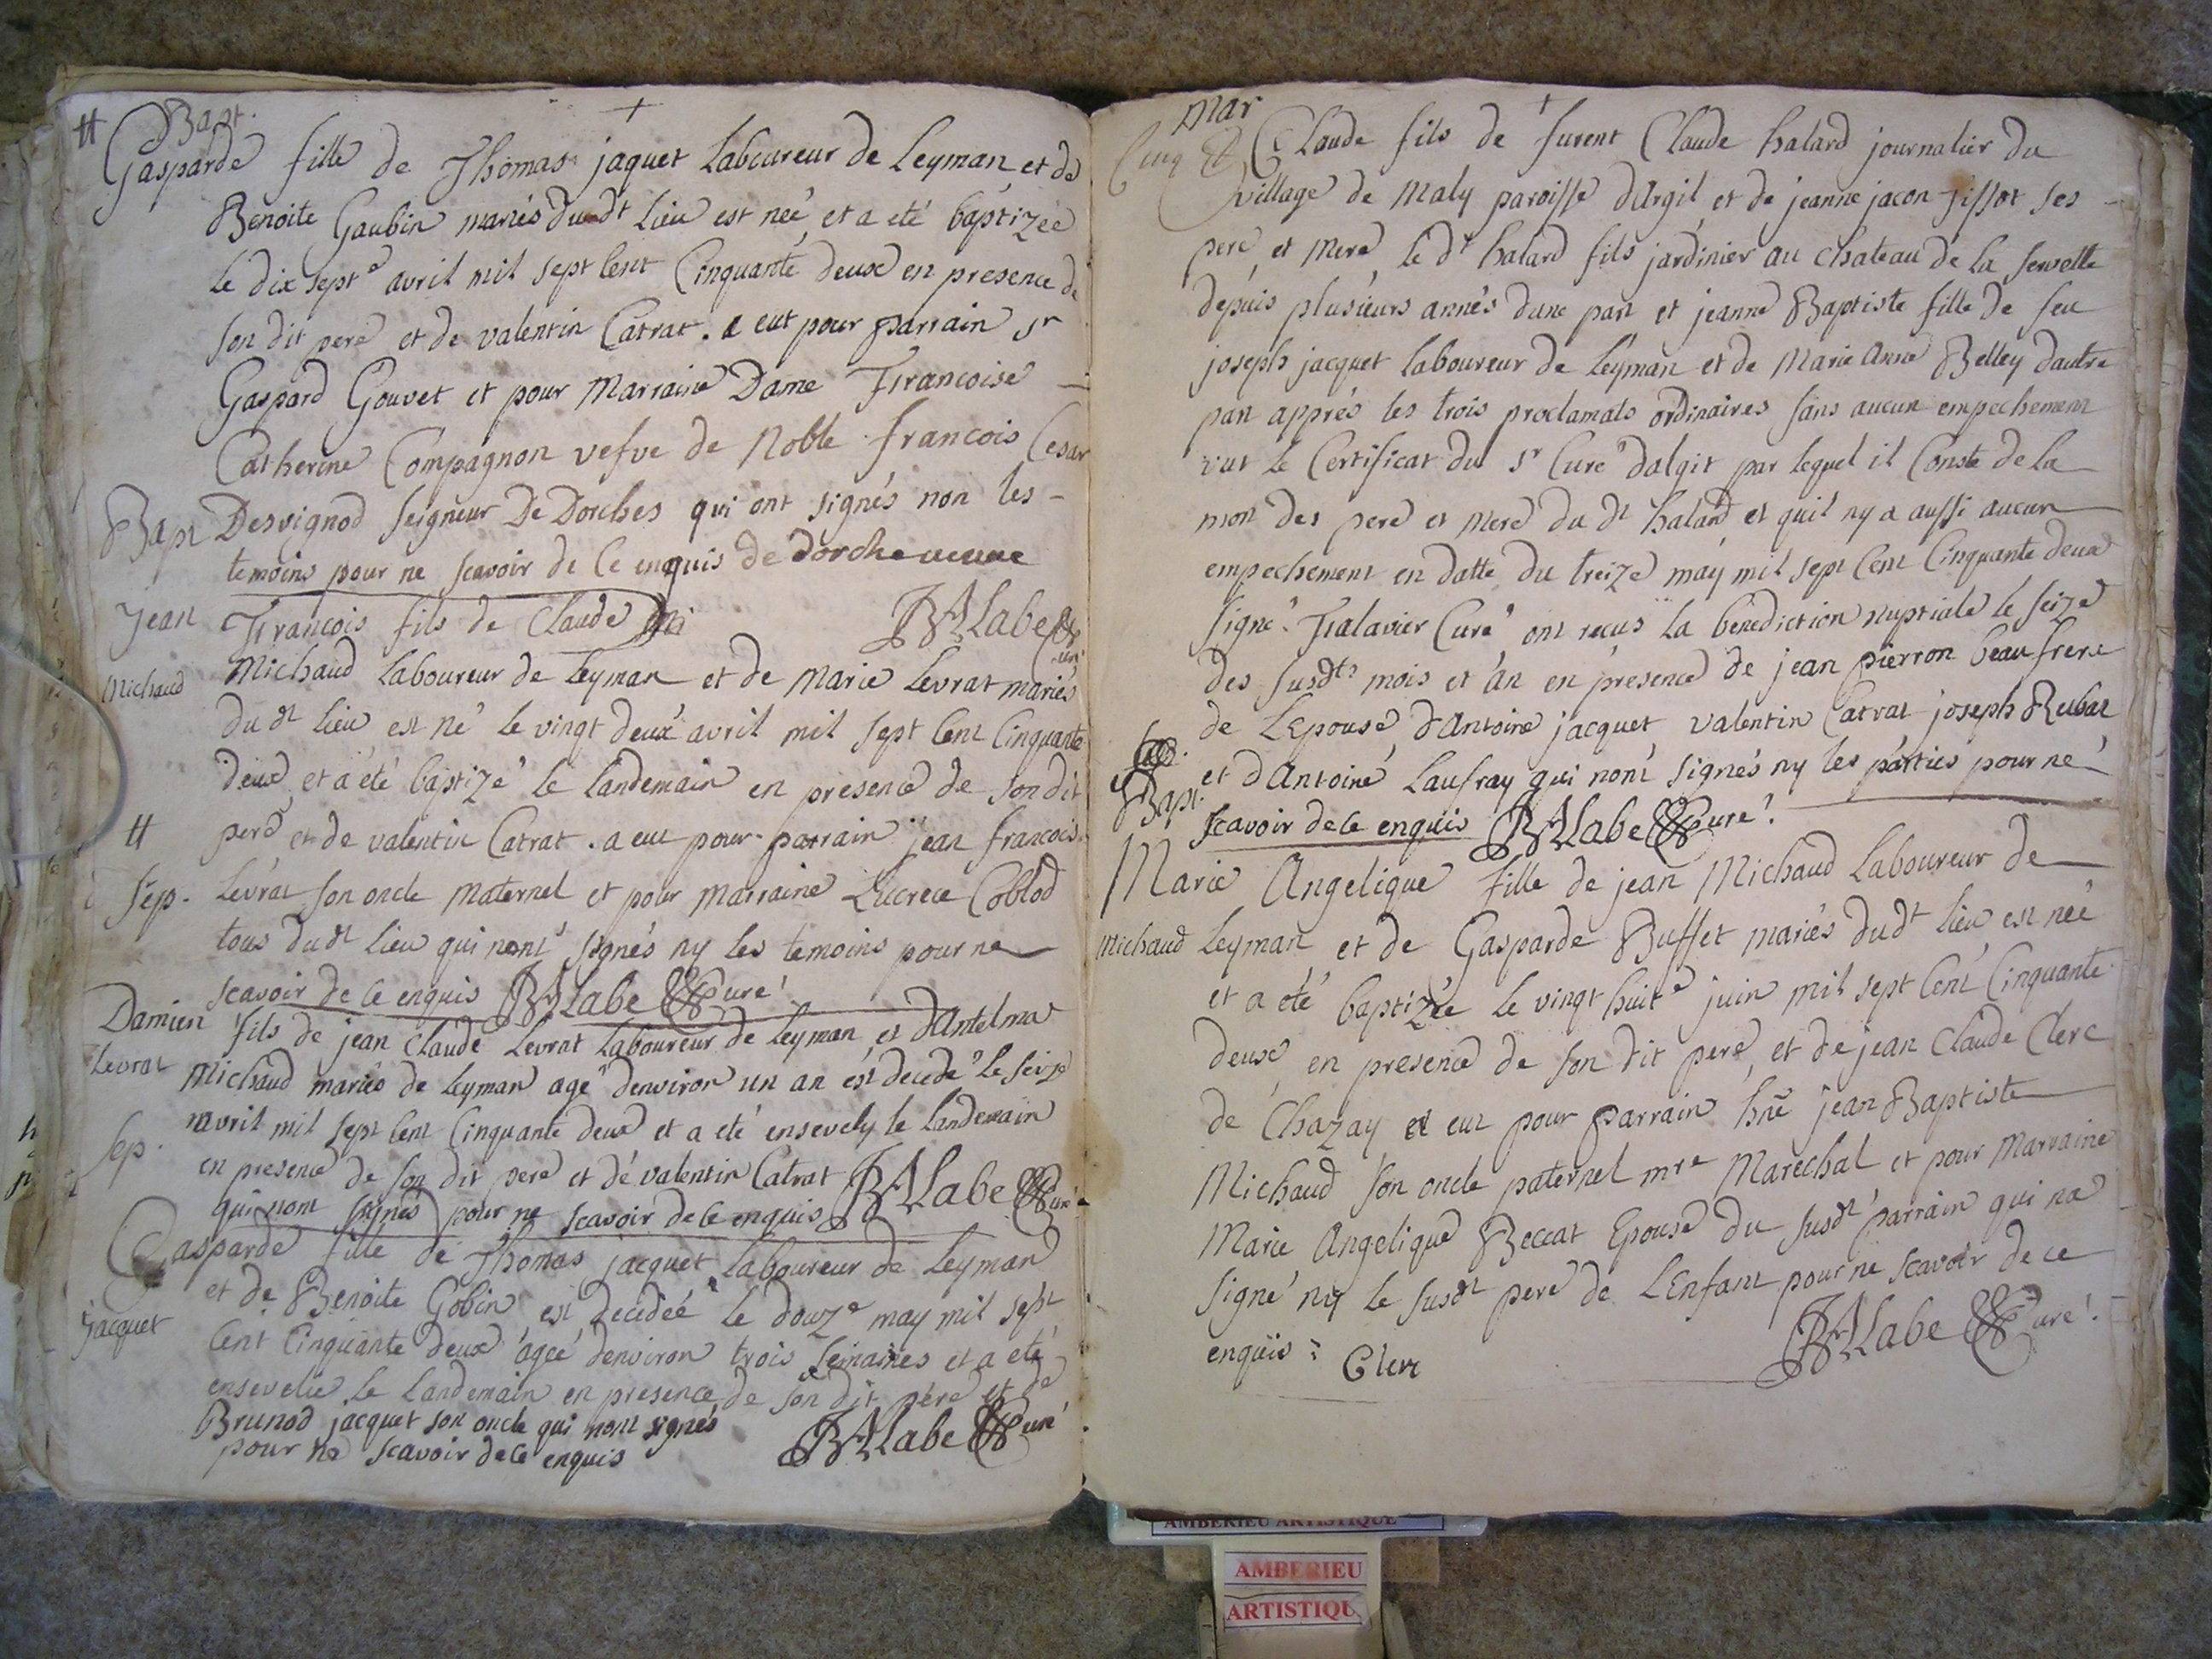 Bapt.
Gasparde fille de Thomas jaquet Laboureur de Leyman et de
Benoite Gaubin mariés dudt Lieu est neé et a eté baptizeé
le dix septe avril mil sept Cent Cinquante deux en presence de
son dit pere et de valentin Catrat. a eut pour parrain sr
Gaspard Gouvet et pour Marraine Dame Francoise
Catherine Compagnon vefve de Noble francois Cesar
Bapt Desvignod seigneur De Dorches qui ont signés non les
temoins pour ne scavoir de ce enquis de dorche
Jean Francois fils de Claude
BALabe
Michaud Michaud Laboureur de Leyman et de Marie Levrat mariés
du dt lieu est né le vingt deux avril mil sept Cent Cinquante
deux et a été baptizé le landemain en presence de son dit
pere et de valentin Catrat. a eut pour parrain jean francois
Sep. Levrat son oncle maternel et pour marraine Lucrece Coblod
tous dudt lieu qui nont signés ny les temoins pour ne
scavoir de ce enquis BALabe Curé
Damien fils de jean Claude Levrat Laboureur de Leyman et dAntelma
Levrat Michaud mariés de Leyman agé denviron un an est decedé le seize
avril mil sept Cent Cinquante deux et a eté ensevely le landemain
Sep. en presence de son dit pere et de valentin Catrat
qui nont signés pour ne scavoir de ce enquis BALabe Curé
Gasparde fille de Thomas jacquet Laboureur de Leyman
et de Benoite Gobin est decedeé le douze may mil sept
jacquet Cent Cinquante deux ageé denviron trois semaines et a eté
ensevelie le landemain en presence de son dit pere et de
Brunod jacquet son oncle qui nont signés
pour ne scavoir de ce enquis BALabe Curé
mar
Claude fils de furent Claude halard journalier du
village de Maly paroisse dArgil et de jeanne jacon pissot ses
pere et mere le dt halard fils jardinier au chateau de la servette
depuis plusieurs annés dune part et jeanne Baptiste fille de feu
joseph jacquet laboureur de Leyman et de Marie Anne Belley dautre
part apprés les trois proclamats ordinaires sans aucun empechement
vut le Certificat du sr Curé dalgit par lequel il Conste de la
mort des pere et mere du dt halard et quil ny a aussi aucun
empechement en datte du treize may mil sept Cent Cinquante deux
signé Falavier Curé ont recus la benediction nuptiale le seize
des susdts mois et an en presence de jean pierron beau frere
de LEpouse dAntoine jacquet valentin Catrat joseph Rubat
et dAntoine Laufray qui nont signés ny les parties pour ne
Bapt.
scavoir de ce enquis BALabe Curé
Marie Angelique fille de jean Michaud Laboureur de
Michaud Leyman et de Gasparde Buffet mariés dudt lieu est neé
et a eté baptizée le vingt huite juin mil sept Cent Cinquante
deux en presence de son dit pere et de jean Claude Clerc
de Chazay a eut pour parrain hne jean Baptiste
Michaud son oncle paternel mre Marechal et pour Marraine
Marie Angelique Beccat Epouse du susdt parrain qui na
signé ny le susdt pere de LEnfant pour ne scavoir de ce
enquis Clerc BALabe Curé
AMBERIEU ARTISTIQUE
AMBERIEU
ARTISTIQU